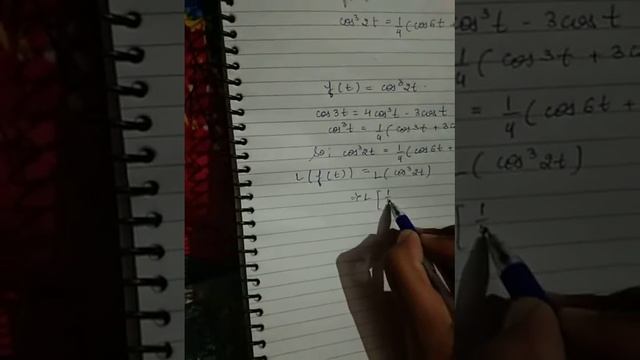 cos³2t = 1/4 (cos6t
f(t) = cos³2t.
cos3t = 4cos³t - 3cost
cos³t = 1/4 (cos3t + 3c
So; cos³2t = 1/4 (cos6t +
L[f(t)] = L(cos³2t)
L[1
cos³t - 3cost
1/4 (cos3t + 3c
= 1/4 (cos6t +
L(cos³2t)
[1